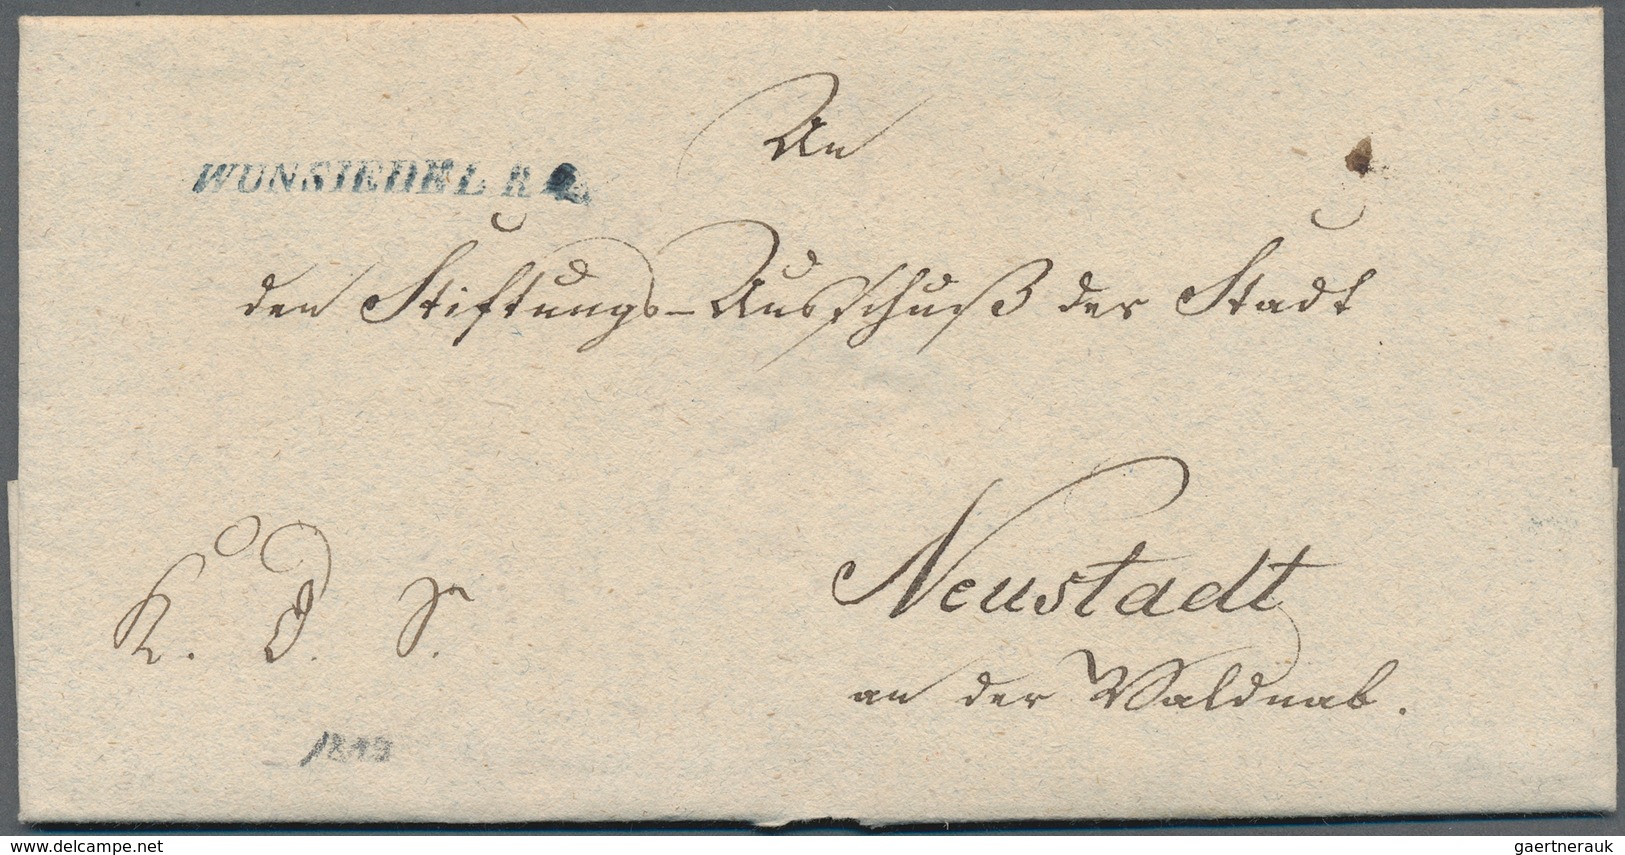 An
WUNSIEDEL R
den Stiftungs-Ausschuß der Stadt
Neustadt
K. D. S.
an der Waldnab.
delcampe.net
gaertnerauk